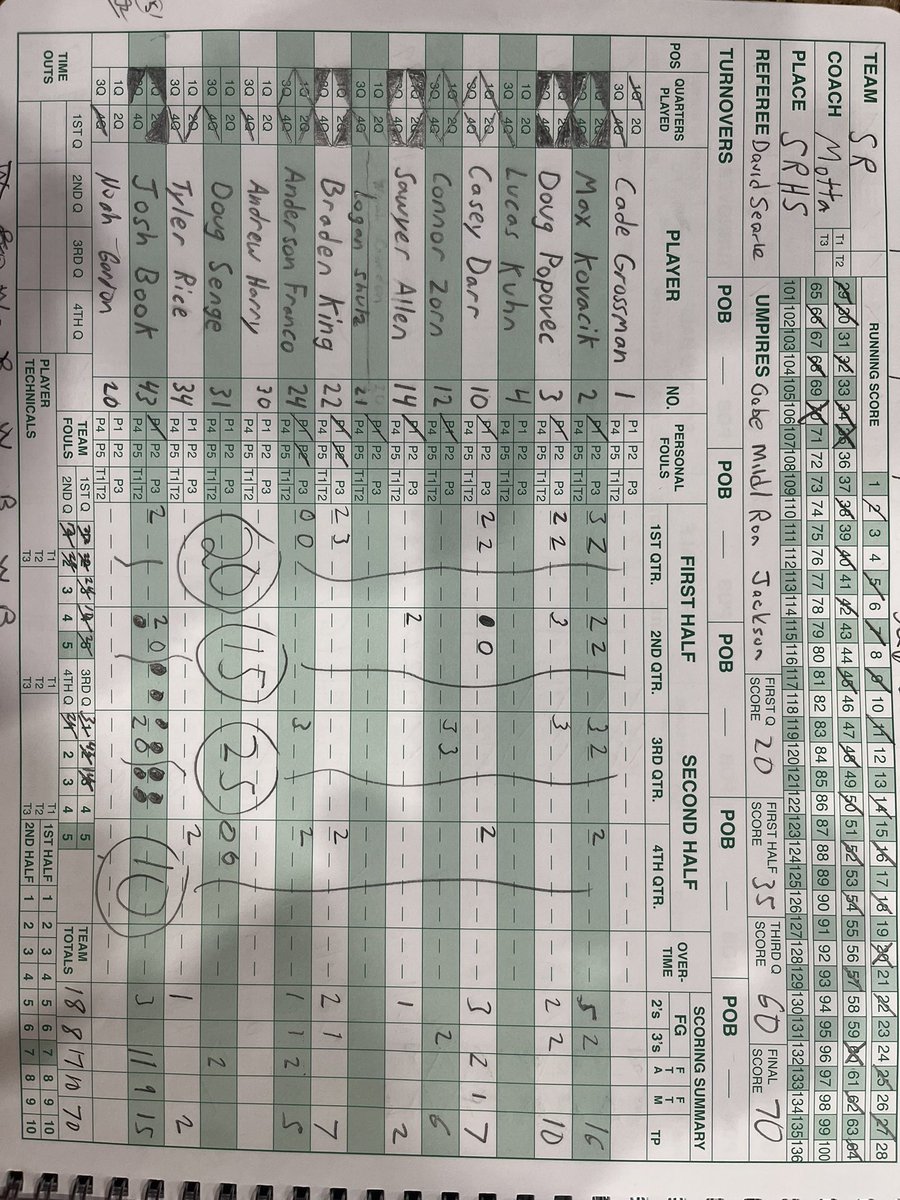 TEAM SR
COACH Motta T1 T2 T3
PLACE SRHS
REFEREE David Searle
UMPIRES Gabe Mildl Ron Jackson
RUNNING SCORE
1 2 3 4 5 6 7 8 9 10 11 12 13 14 15 16 17 18 19 20 21 22 23 24 25 26 27 28
29 30 31 32 33 34 35 36 37 38 39 40 41 42 43 44 45 46 47 48 49 50 51 52 53 54 55 56 57 58 59 60 61 62 63 64
65 66 67 68 69 70 71 72 73 74 75 76 77 78 79 80 81 82 83 84 85 86 87 88 89 90 91 92 93 94 95 96 97 98 99 100
101 102 103 104 105 106 107 108 109 110 111 112 113 114 115 116 117 118 119 120 121 122 123 124 125 126 127 128 129 130 131 132 133 134 135 136
FIRST Q SCORE 20 FIRST HALF SCORE 35 THIRD Q SCORE 60 FINAL SCORE 70
TURNOVERS POB POB POB POB POB
POS QUARTERS PLAYED PLAYER NO. PERSONAL FOULS FIRST HALF SECOND HALF OVER-TIME SCORING SUMMARY
1ST QTR. 2ND QTR. 3RD QTR. 4TH QTR. FG 2's 3's FTA FTM TP
1Q 2Q 3Q 4Q Cade Grossman 1 P1 P2 P3 P4 P5 T1 T2
1Q 2Q 3Q 4Q Max Kovacik 2 P1 P2 P3 P4 P5 T1 T2 3 2 2 2 3 2 2 5 2 16
1Q 2Q 3Q 4Q Doug Popovec 3 P1 P2 P3 P4 P5 T1 T2 2 2 3 3 2 2 10
1Q 2Q 3Q 4Q Lucas Kuhn 4 P1 P2 P3 P4 P5 T1 T2
1Q 2Q 3Q 4Q Casey Darr 10 P1 P2 P3 P4 P5 T1 T2 2 2 0 2 3 2 1 7
1Q 2Q 3Q 4Q Connor Zorn 12 P1 P2 P3 P4 P5 T1 T2 3 3 2 6
1Q 2Q 3Q 4Q Sawyer Allen 14 P1 P2 P3 P4 P5 T1 T2 2 1 2
1Q 2Q 3Q 4Q Logan Shutz 21 P1 P2 P3 P4 P5 T1 T2
1Q 2Q 3Q 4Q Braden King 22 P1 P2 P3 P4 P5 T1 T2 2 3 2 2 1 7
1Q 2Q 3Q 4Q Anderson Franco 24 P1 P2 P3 P4 P5 T1 T2 0 0 3 2 1 1 2 5
1Q 2Q 3Q 4Q Andrew Harry 30 P1 P2 P3 P4 P5 T1 T2
1Q 2Q 3Q 4Q Doug Senge 31 P1 P2 P3 P4 P5 T1 T2 20 15 25 0 0 2
1Q 2Q 3Q 4Q Tyler Rice 34 P1 P2 P3 P4 P5 T1 T2 2 1 2
1Q 2Q 3Q 4Q Josh Book 43 P1 P2 P3 P4 P5 T1 T2 2 2 0 2 0 10 3 11 9 15
1Q 2Q 3Q 4Q Noah 20 P1 P2 P3 P4 P5 T1 T2
TIME OUTS 1ST Q 2ND Q 3RD Q 4TH Q
TEAM FOULS 1ST Q 3 4 5 3RD Q 4 5 TEAM TOTALS 18 8 17 10 70
2ND Q 3 4 5 4TH Q 2 3 4 5
PLAYER TECHNICALS T1 T2 T3 T1 T2 T3 T1 T2 T3 1ST HALF 1 2 3 4 5 6 7 8 9 10
2ND HALF 1 2 3 4 5 6 7 8 9 10